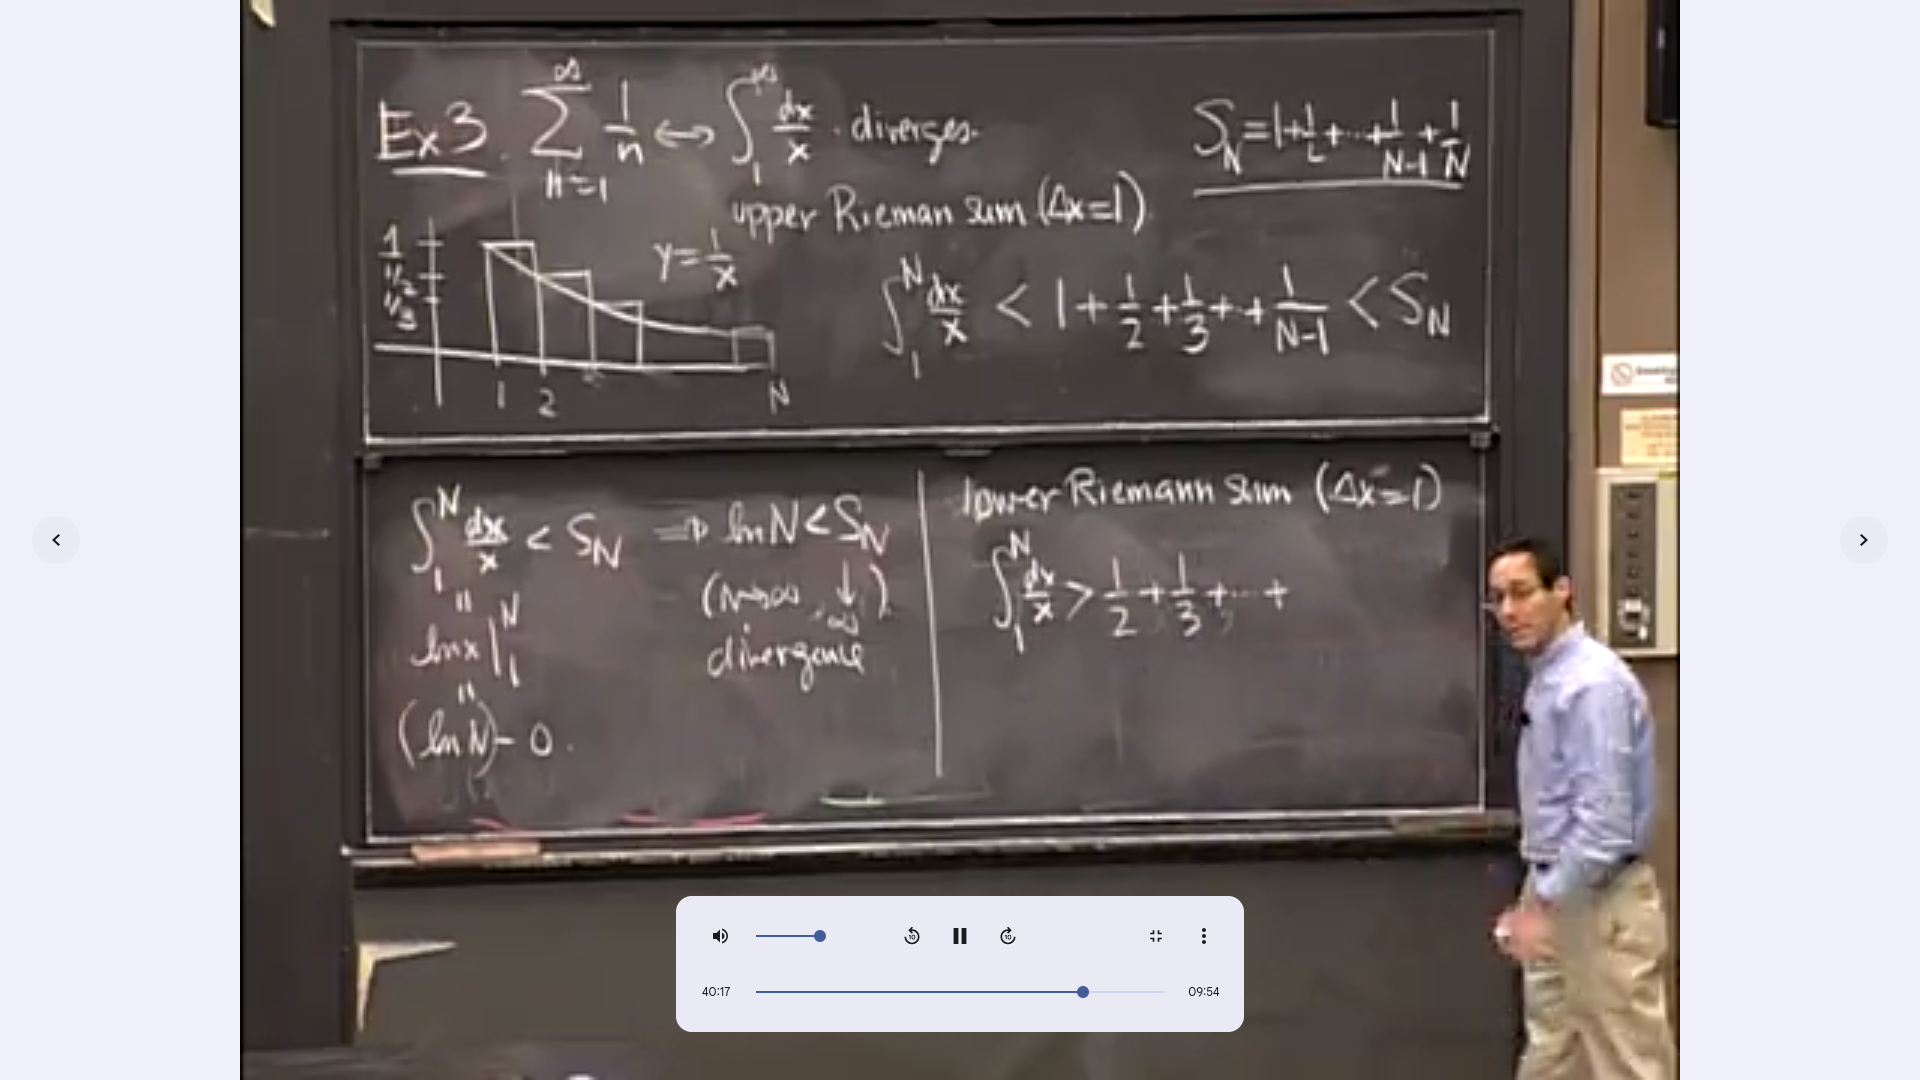 Ex 3. ∞ Σ n=1 1/n ↔ ∫₁^∞ dx/x . diverges.
S_N = 1 + 1/2 + ... + 1/(N-1) + 1/N
upper Rieman sum (Δx=1).
1
1/2
1/3
y = 1/x
1 2 N
∫₁^N dx/x < 1 + 1/2 + 1/3 + ·· + 1/(N-1) < S_N
∫₁^N dx/x < S_N ⇒ ln N < S_N
(N→∞ ↓ ∞)
divergence
||
ln x |₁^N
||
(ln N) - 0.
lower Riemann sum (Δx=1)
∫₁^N dx/x > 1/2 + 1/3 + ... +
10 10
40:17
09:54